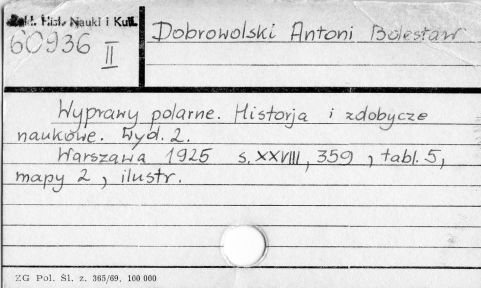 Zakł. Hist. Nauki i Kult.
60936 II
Dobrowolski Antoni Bolesław
Wyprawy polarne. Historja i zdobycze
naukowe. Wyd. 2.
Warszawa 1925 s. XXVIII, 359, tabl. 5,
mapy 2, ilustr.
ZG Pol. Śl. z. 365/69, 100 000